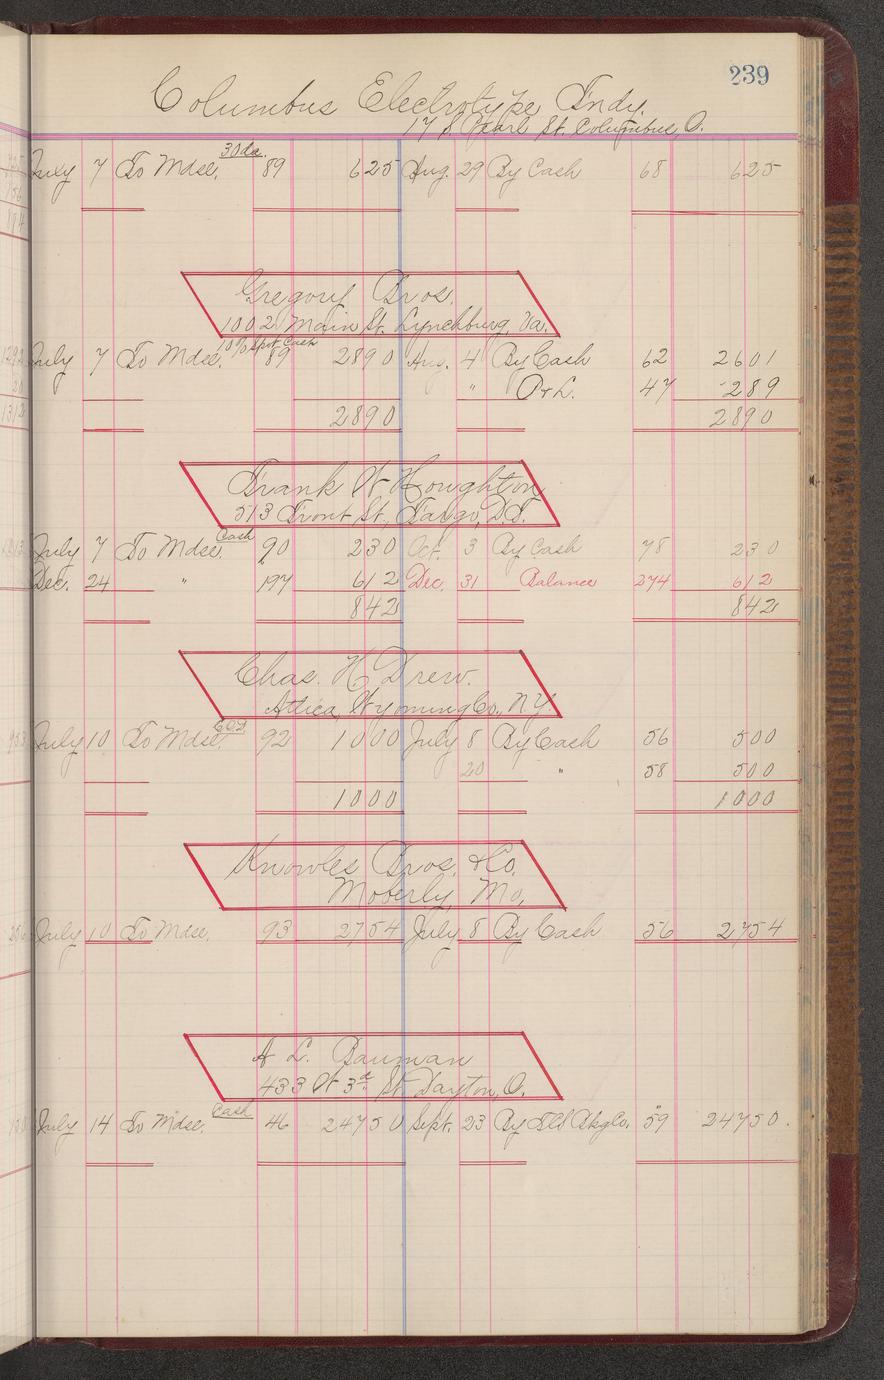 239
Columbus Electrotype Fndy.
17 S Pearl St. Columbus, O.
30 da.
July 7 To Mdse. 89 625 Aug. 29 By Cash 68 625
Gregory Bros.
1002 Main St. Lynchburg, Va.
10% Spot Cash
July 7 To Mdse. 89 2890 Aug. 4 By Cash 62 2601
" P&L. 47 289
2890 2890
Frank W Houghton
513 Front St., Fargo, D.T.
Cash
July 7 To Mdse. 90 230 Oct. 3 By Cash 78 230
Dec. 24 " 197 612 Dec. 31 Balance 274 612
842 842
Chas. H. Drew.
Attica, Wyoming Co., N.Y.
C.O.D.
July 10 To Mdse. 92 1000 July 8 By Cash 56 500
20 " 58 500
1000 1000
Knowles Bros. & Co.
Moberly, Mo.
July 10 To Mdse. 93 2754 July 8 By Cash 56 2754
A L. Bauman
433 W 3d St Dayton, O.
Cash
July 14 To Mdse. 46 24750 Sept. 23 By Bkg Co. 59 24750.